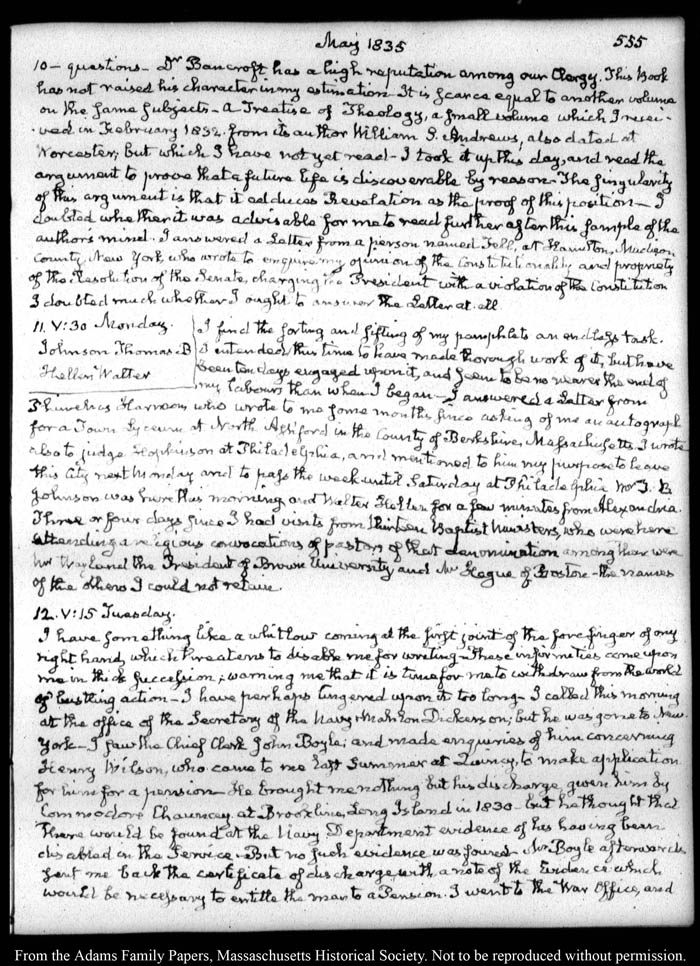 May 1835 555
10 – questions – Dr Bancroft has a high reputation among our Clergy. This Book
has not raised his character in my estimation – It is scarce equal to another volume
on the same subjects – a Treatise of Theology, a small volume which I recei-
ved in February 1832. from its author William S. Andrews, also dated at
Worcester; but which I have not yet read – I took it up this day, and read the
argument to prove that a future life is discoverable by reason – The singularity
of this argument is that it adduces Revelation as the proof of this position – I
doubted whether it was advisable for me to read further after this sample of the
author's mind. I answered a Letter from a person named Fell, at Hamilton, Madison
County, New York who wrote to enquire my opinion of the Constitutionality and propriety
of the Resolution of the Senate, charging the President with a violation of the Constitution
I doubted much whether I ought to answer the Letter at all
11. V:30 Monday. I find the sorting and sifting of my pamphlets an endless task.
Johnson Thomas B I intended this time to have made thorough work of it, but have
Hellen Walter been ten days engaged upon it, and seem to be no nearer the end of
my labours than when I began – I answered a Letter from
Phinehas Harmon who wrote to me some months since asking of me an autograph
for a Town Lyceum at North Ashford in the County of Berkshire, Massachusetts. I wrote
also to judge Hopkinson at Philadelphia, and mentioned to him my purpose to leave
this City next Monday and to pass the week until Saturday at Philadelphia Mr T. B.
Johnson was here this morning, and Walter Hellen for a few minutes from Alexandria.
Three or four days since I had visits from thirteen Baptist Ministers, who were here
attending a religious convocations of pastors of that denomination among them were
Mr Wayland the President of Brown University, and Mr Hague of Boston – the names
of the others I could not retain.
12. V:15 Tuesday.
I have something like a whitlow coming at the first joint of the fore finger of my
right hand, which threatens to disable me for writing – These infirmities come upon
me in thick succession; warning me that it is time for me to withdraw from the world
of bustling action – I have perhaps lingered upon it too long – I called this morning
at the office of the Secretary of the Navy Mahlon Dickerson; but he was gone to New
York – I saw the Chief Clerk John Boyle; and made enquiries of him concerning
Henry Wilson, who came to me last Summer at Quincy, to make application
for him for a pension – He brought me nothing but his discharge, given him by
Commodore Chauncey, at Brooklin, Long Island in 1830 – but he thought that
there would be found at the Navy Department evidence of his having been
disabled in the Service – But no such evidence was found – Mr Boyle afterwards
sent me back the certificate of discharge, with a note of the Evidence which
would be necessary to entitle the man to a Pension. I went to the War Office, and
From the Adams Family Papers, Massachusetts Historical Society. Not to be reproduced without permission.